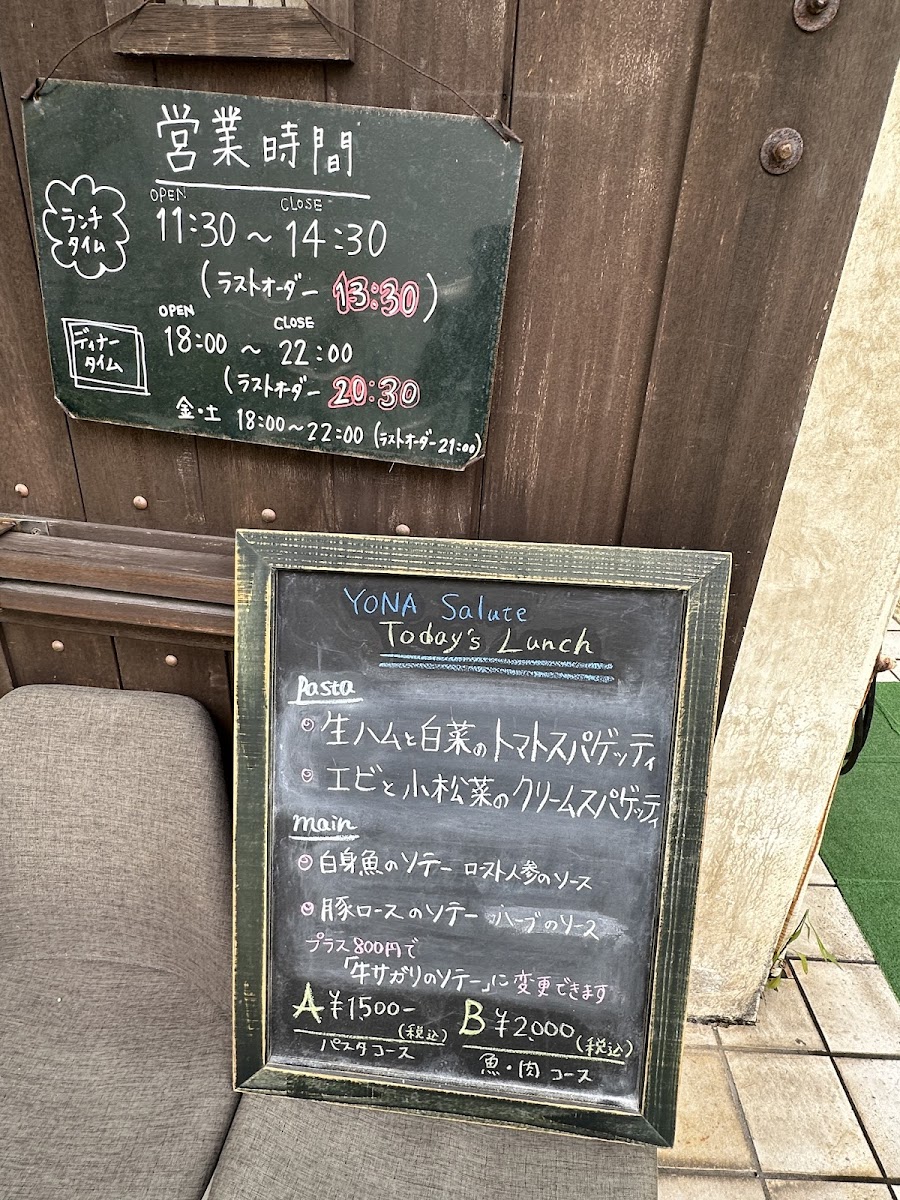 営業時間
ランチ
タイム
OPEN CLOSE
11:30 ~ 14:30
(ラストオーダー 13:30)
OPEN CLOSE
ディナー
タイム
18:00 ~ 22:00
(ラストオーダー 20:30
金・土 18:00~22:00 (ラストオーダー 21:00)
YONA Salute
Today's Lunch
Pasta
生ハムと白菜のトマトスパゲッティ
エビと小松菜のクリームスパゲッティ
main
白身魚のソテー ロースト人参のソース
豚ロースのソテー ハーブのソース
プラス800円で
「牛サガリのソテー」に変更できます
A ¥1500- (税込)
パスタコース
B ¥2,000 (税込)
魚・肉コース